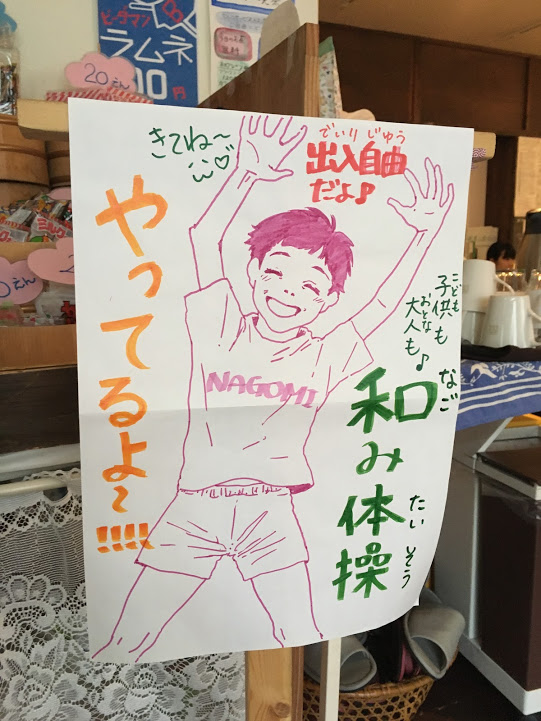 ビーダマン
ラムネ
10円
20えん
きてね〜
でいりじゆう
出入自由
だよ♪
やってるよ〜!!!!
こども
子供も
おとな
大人も♪
NAGOMI
なごみたいそう
和み体操